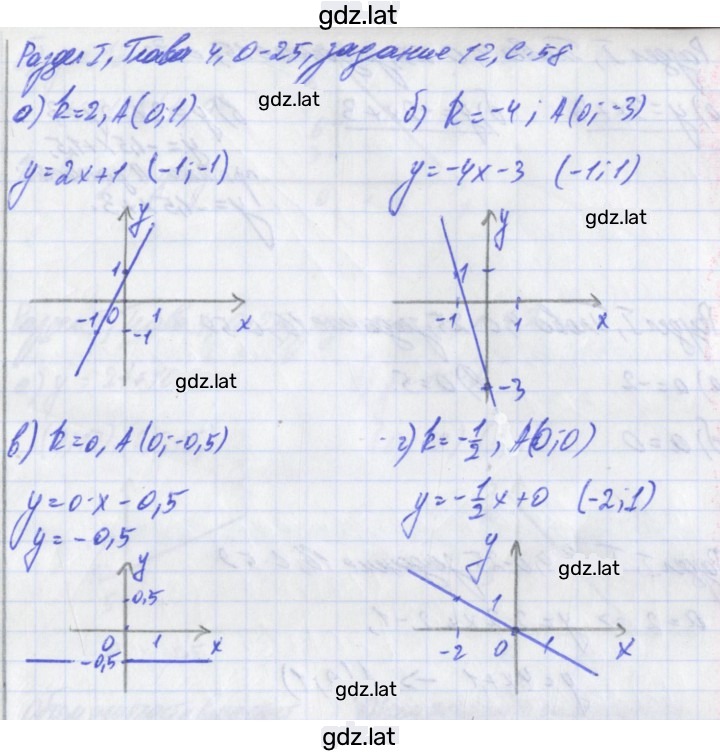 gdz.lat
Раздел I, Глава 4, О-25, задание 12, с. 58
а) k=2, A(0;1)
gdz.lat
y=2x+1 (-1;-1)
y
1
-1 0 1 x
-1
gdz.lat
б) k=-4; A(0;-3)
y=-4x-3 (-1;1)
gdz.lat
y
1
-1 1 x
-3
в) k=0, A(0;-0,5)
y=0·x-0,5
y=-0,5
y
0,5
0 1 x
-0,5
г) k=-1/2, A(0;0)
y=-1/2x+0 (-2;1)
y
gdz.lat
1
-2 0 1 x
gdz.lat
gdz.lat